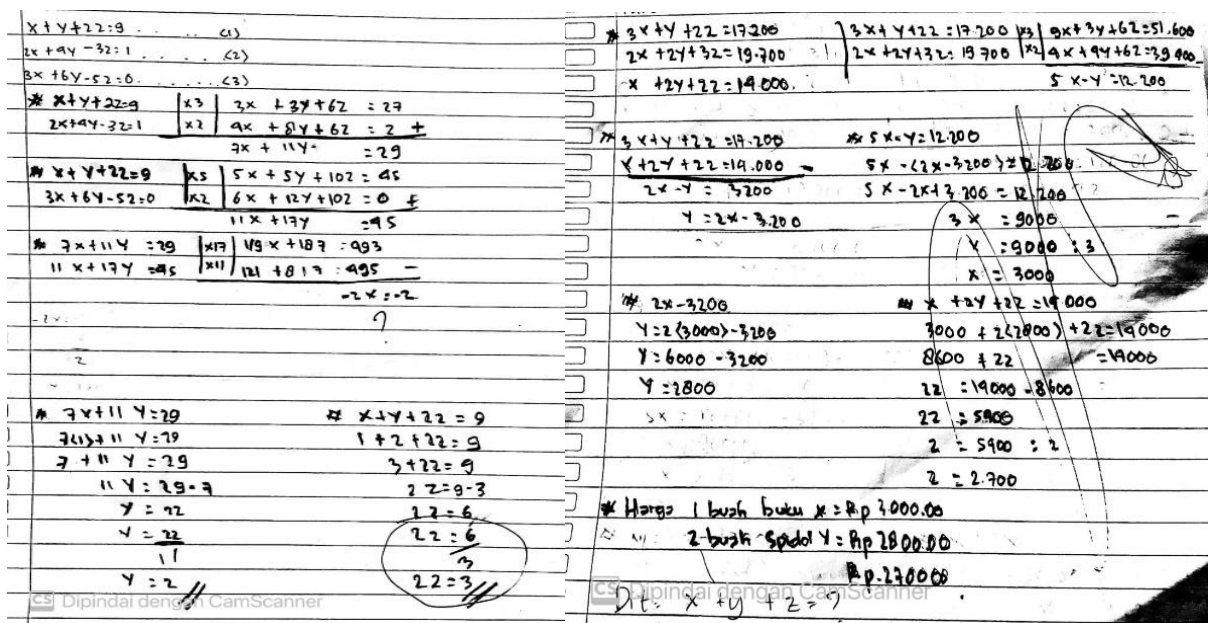 x + y + 2z = 9 . . . . . (1)
2x + 4y - 3z = 1 . . . . . (2)
3x + 6y - 5z = 0 . . . . . (3)
* x + y + 2z = 9 | x3 | 3x + 3y + 6z = 27
2x + 4y - 3z = 1 | x2 | 4x + 8y + 6z = 2 +
7x + 11y = 29
* x + y + 2z = 9 | x5 | 5x + 5y + 10z = 45
3x + 6y - 5z = 0 | x2 | 6x + 12y + 10z = 0 +
11x + 17y = 45
* 7x + 11y = 29 | x17 | 119x + 187 = 493
11x + 17y = 45 | x11 | 121 + 817 = 495 -
-2x = -2
?
* 7x + 11y = 29
7(1) + 11y = 29
7 + 11y = 29
11y = 29 - 7
y = 22
y = 22
11
y = 2
* x + y + 2z = 9
1 + 2 + 2z = 9
3 + 2z = 9
2z = 9 - 3
2z = 6
2z = 6
3
2z = 3
CS Dipindai dengan CamScanner
* 3x + y + 2z = 17.200
2x + 2y + 3z = 19.700
x + 2y + 2z = 14.000
3x + y + 2z = 17.200 | x3 | 9x + 3y + 6z = 51.600
2x + 2y + 3z = 19.700 | x2 | 4x + 4y + 6z = 39.400 -
5x - y = 12.200
* 3x + y + 2z = 17.200
x + 2y + 2z = 14.000 -
2x - y = 3200
y = 2x - 3.200
* 5x - y = 12.200
5x - (2x - 3200) = 12.200
5x - 2x + 3.200 = 12.200
3x = 9000
x = 9000 : 3
x = 3000
* 2x - 3200
y = 2(3000) - 3200
y = 6000 - 3200
y = 2800
* x + 2y + 2z = 14.000
3000 + 2(2800) + 2z = 14000
8600 + 2z = 14000
2z = 14000 - 8600
2z = 5900
z = 5900 : 2
z = 2.700
* Harga 1 buah buku x = Rp 3.000.00
2 buah spidol y = Rp 2800.00
Rp. 270000
Dit: x + y + z = ?
CS Dipindai dengan CamScanner